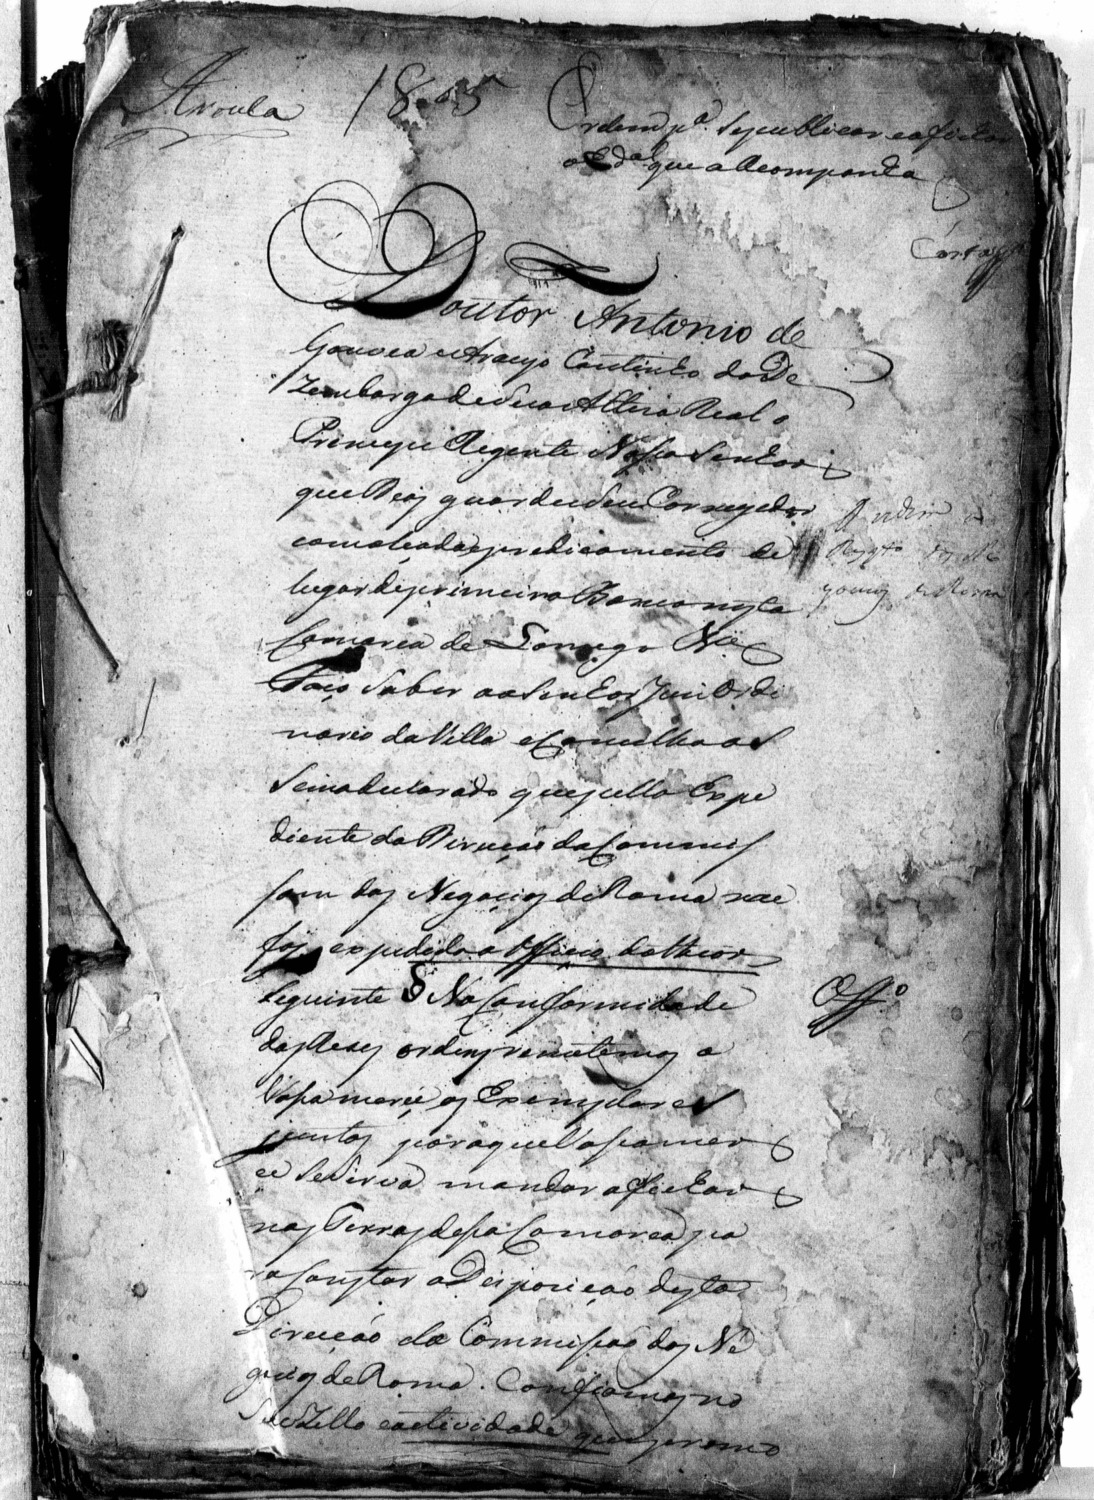 Arouca 1805
Ordem p.ª Sepublicar eafixar
o Ed.al que a Acompanha
Doutor Antonio de
Gouvea e Araujo Coutinho do De
zembargo de Sua Alteza Real o
Principe Regente Nosso Senhor
que Deos guarde e Seu Corregedor
com predicamento de
lugar de primeiro Banco nesta
Comarca de Lamego &c
Faço Saber ao Senhor Juiz Ordi
nario da Villa e Concelho
que pella Expe
diente da Direcção da Commis
sam dos Negocios de Roma me
foi expedido o Officio do theor
Seguinte § Na Conformidade
das Reaes ordens remetemos a
Vossa merce os Exemplares
juntos para que Vossa mer
ce Se Sirva mandar afixar
nas Terras dessa Comarca pa
ra Constar a Dispozição desta
Direcção da Commissão dos Ne
gocios de Roma. Confiamos no
Seu Zello e actividade que
Off.º